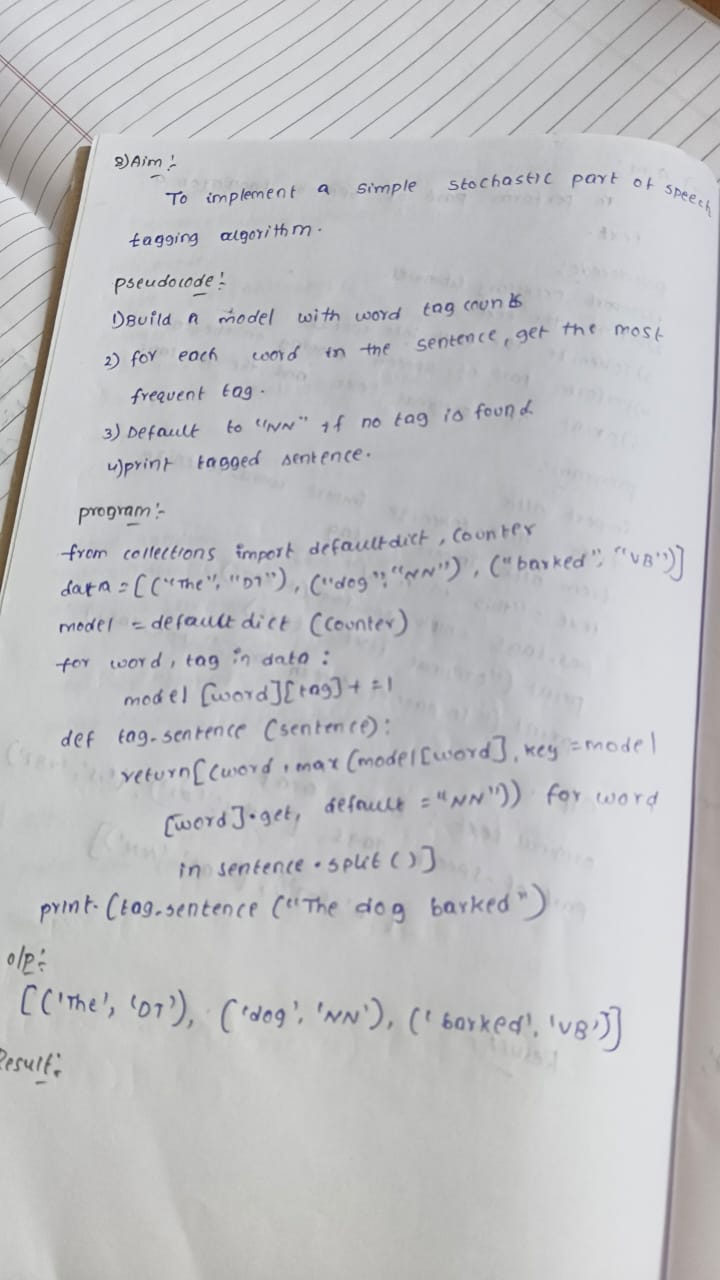 8) Aim :-
To implement a simple stochastic part of speech
tagging algorithm.
pseudocode :-
1) Build a model with word tag counts
2) for each word in the sentence, get the most
frequent tag.
3) Default to "NN" if no tag is found.
4) print tagged sentence.
program :-
from collections import defaultdict, Counter
data = [("The", "DT"), ("dog", "NN"), ("barked", "VB")]
model = default dict (Counter)
for word, tag in data :
model [word][tag] + = 1
def tag-sentence (sentence):
return [(word, max (model[word], key = model
[word].get, default = "NN")) for word
in sentence.split()]
print (tag-sentence ("The dog barked")
o/p :-
[('The', 'DT'), ('dog', 'NN'), ('barked', 'VB')]
Result :-